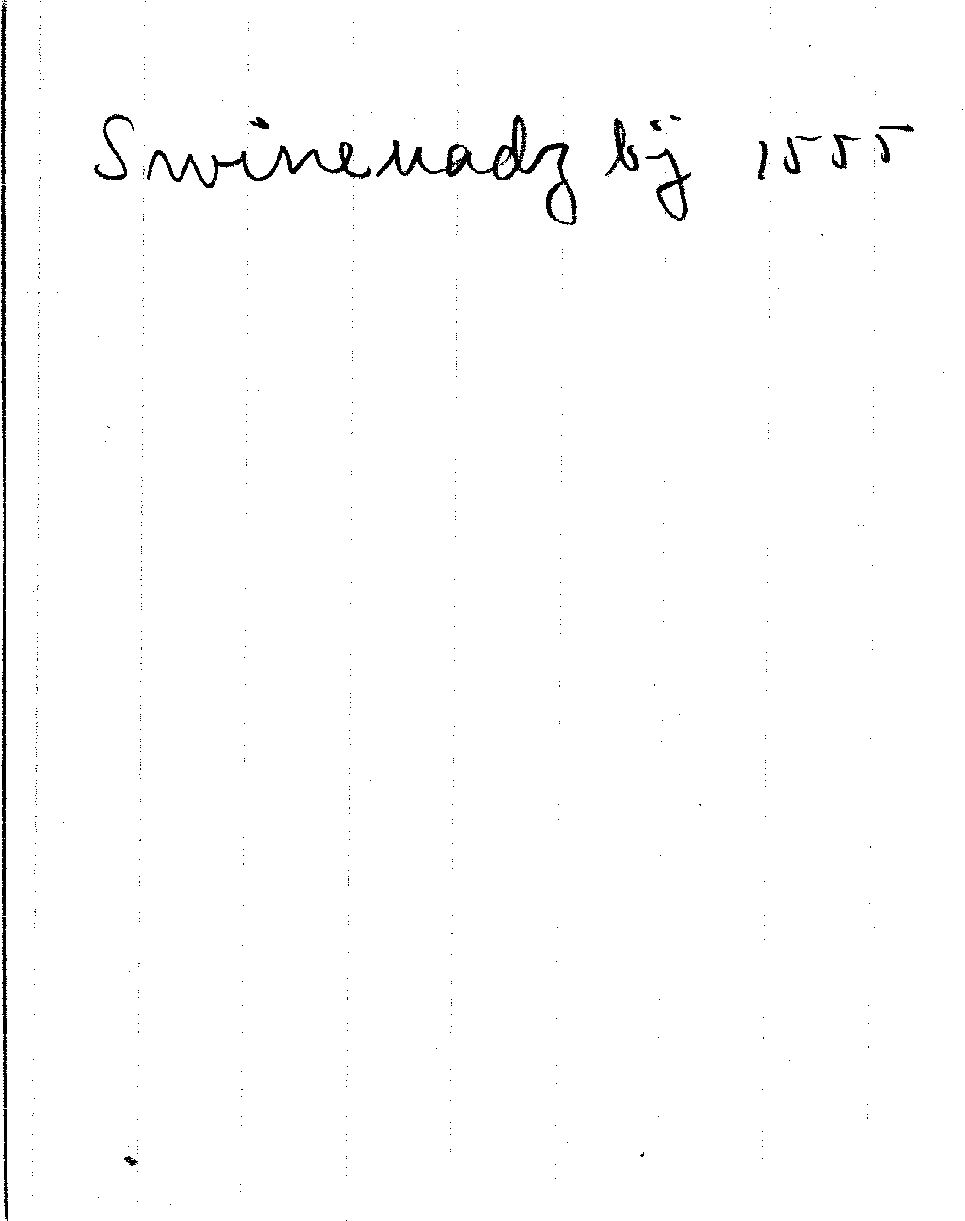 Swinenadz bij 1555